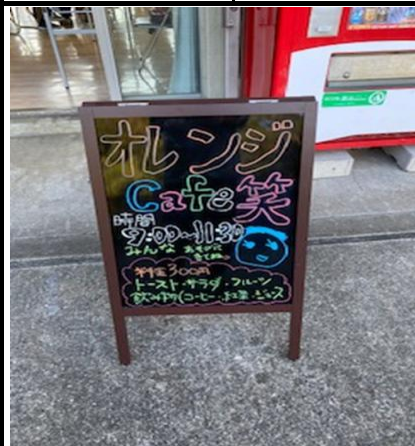 オレンジ
Cafe笑
時間
9:00~11:30
みんな あそびに
きてね。
料金300円
トースト・サラダ・フルーツ
飲み物(コーヒー・紅茶・ジュース